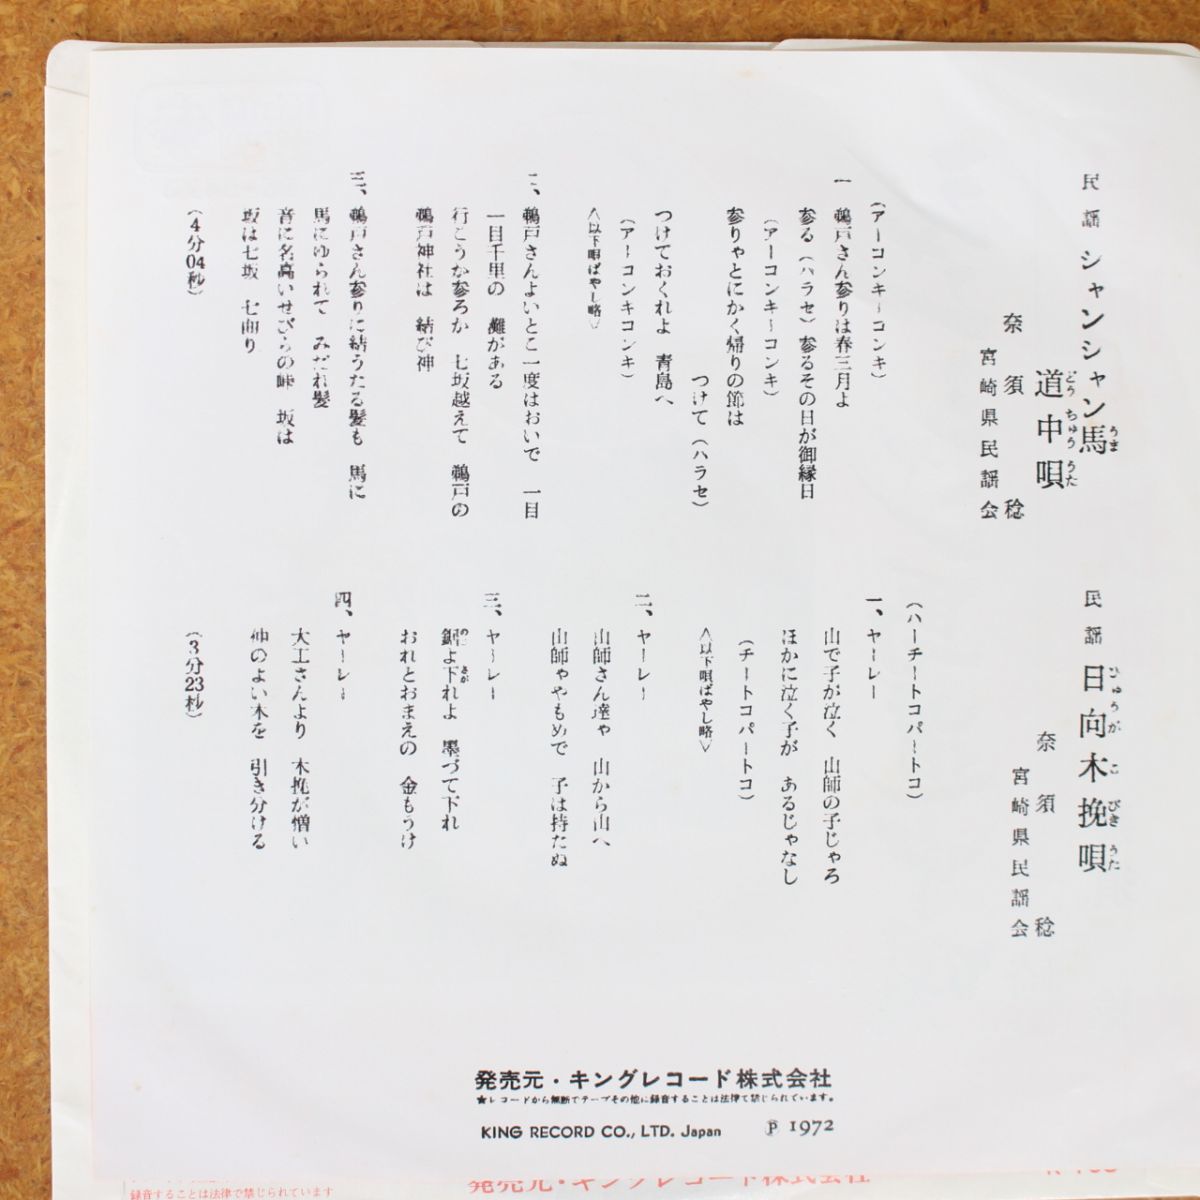 民謡 シャンシャン馬
道中唄
奈須稔
宮崎県民謡会
(アーコンキーコンキ)
一 鵜戸さん参りは春三月よ
参る(ハラセ)参るその日が御縁日
(アーコンキーコンキ)
参りゃとにかく帰りの節は
つけて(ハラセ)
つけておくれよ 青島へ
(アーコンキコンキ)
〈以下唄ばやし略〉
二、鵜戸さんよいとこ一度はおいで 一目
一目千里の 灘がある
行こうか参ろか 七坂越えて 鵜戸の
鵜戸神社は 結び神
三、鵜戸さん参りに結うたる髪も 馬に
馬にゆられて みだれ髪
音に名高いせびらの峠 坂は
坂は七坂 七曲り
(4分04秒)
民謡 日向木挽唄
奈須稔
宮崎県民謡会
(ハーチートコパートコ)
一、ヤーレー
山で子が泣く 山師の子じゃろ
ほかに泣く子が あるじゃなし
(チートコパートコ)
〈以下唄ばやし略〉
二、ヤーレー
山師さん達ゃ 山から山へ
山師ゃやもめで 子は持たぬ
三、ヤーレー
鋸よ下れよ 墨づて下れ
おれとおまえの 金もうけ
四、ヤーレー
大工さんより 木挽が憎い
仲のよい木を 引き分ける
(3分23秒)
発売元・キングレコード株式会社
★レコードから無断でテープその他に録音することは法律で禁じられています。
KING RECORD CO., LTD. Japan ℗ 1972
録音することは法律で禁じられています
発売元・キングレコード株式会社